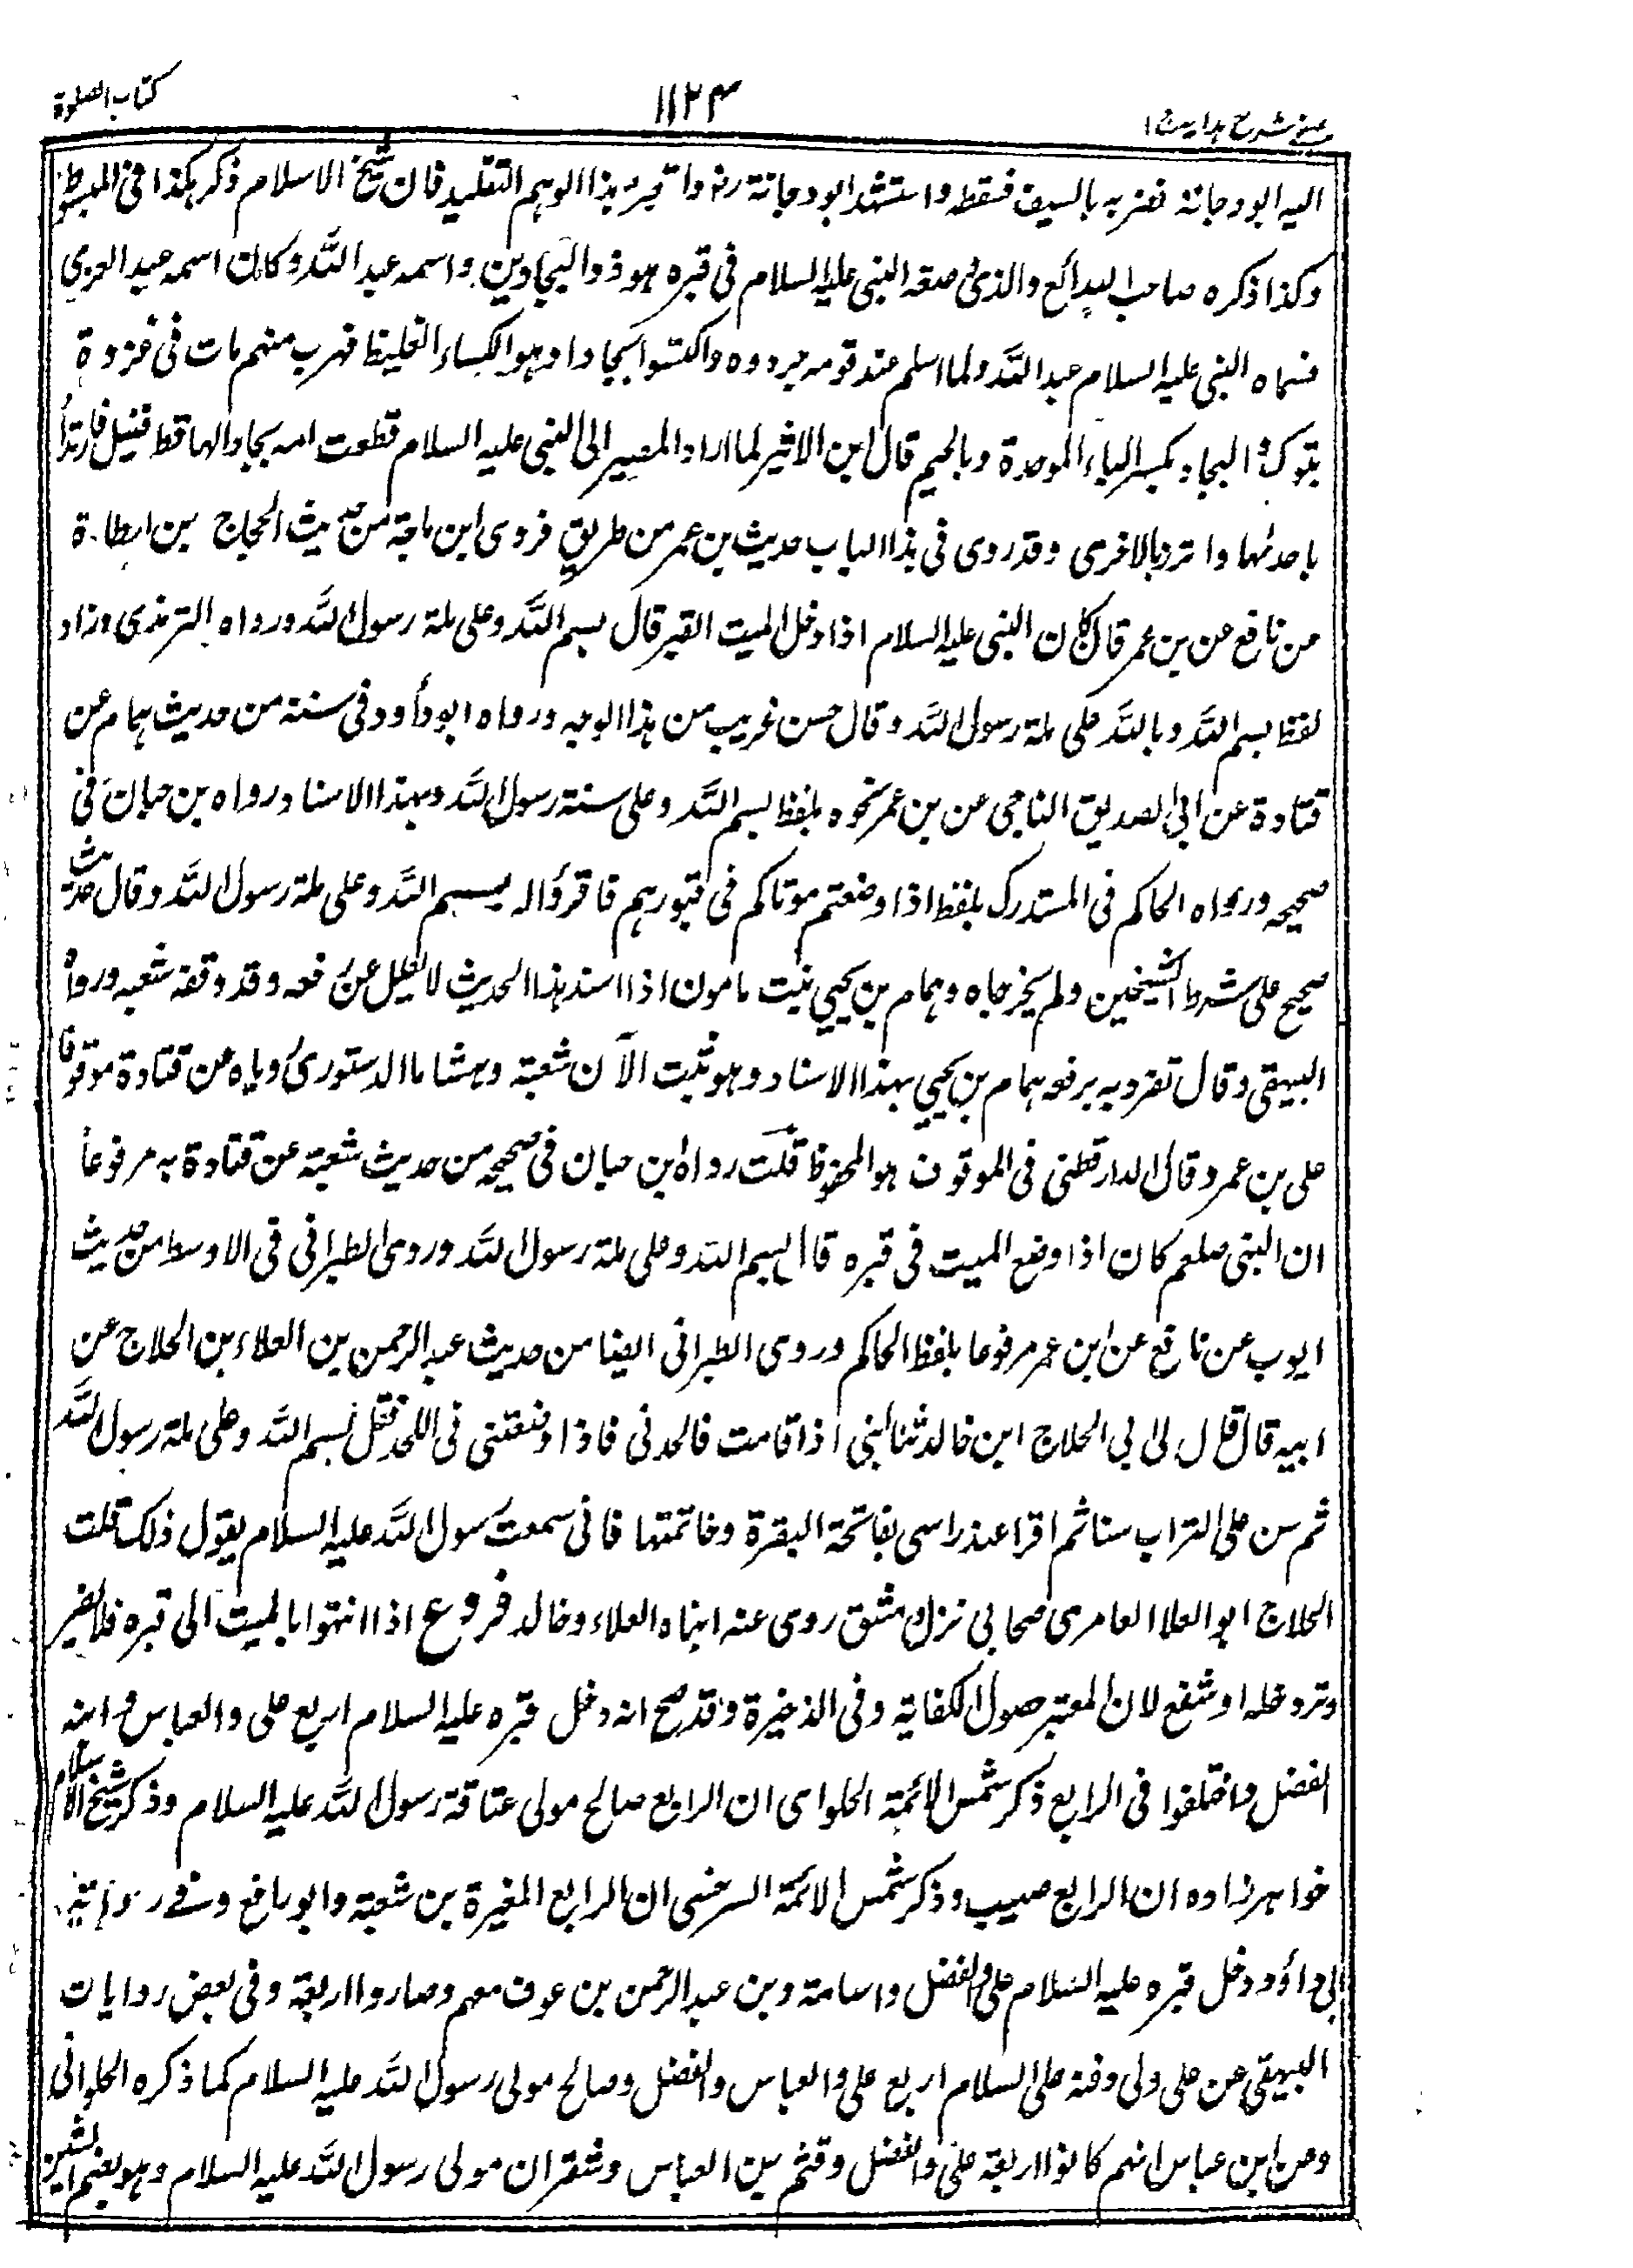 عینی شرح ہدایہ ج ۱
۱۱۲۴
کتاب الصلوۃ
الیہ ابو دجانۃ فضربہ بالسیف فسقط واستشہد ابو دجانۃ رض وا ہذا الوہم التقلید فان شیخ الاسلام ذکر ہکذا فی المبسوط
وکذا ذکرہ صاحب البدائع والذی وضعہ النبی علیہ السلام فی قبرہ ہو ذو البجادین واسمہ عبد اللہ وکان اسمہ عبد العزی
فسماہ النبی علیہ السلام عبد اللہ ولما اسلم عند قومہ جردوہ واکتسوا بجادا وہو الکساء الغلیظ فہرب منہم مات فی غزوۃ
تبوک البجاد بکسر الباء الموحدۃ وبالجیم قال ابن الاثیر لما اراد المصیر الی النبی علیہ السلام قطعت امہ بجادا لہا قط فارتدأ
باحدہا واتزر بالاخری وقد روی فی ہذا الباب حدیث بن عمر من طریق فروی ابن ماجۃ من حدیث الحجاج بن ارطاۃ
من نافع عن بن عمر قال کان النبی علیہ السلام اذا دخل المیت القبر قال بسم اللہ وعلی ملۃ رسول اللہ ورواہ الترمذی وزاد
لفظ بسم اللہ وباللہ علی ملۃ رسول اللہ وقال حسن غریب من ہذا الوجہ ورواہ ابو داؤد فی سننہ من حدیث ہمام عن
قتادۃ عن ابی الصدیق الناجی عن بن عمر نحوہ بلفظ بسم اللہ وعلی سنۃ رسول اللہ وبہذا الاسناد رواہ بن حبان فی
صحیحہ ورواہ الحاکم فی المستدرک بلفظ اذا وضعتم موتاکم فی قبورہم فاقرؤا لہ بسم اللہ وعلی ملۃ رسول اللہ وقال حدیث
صحیح علی شرط الشیخین ولم یخرجاہ وہمام بن یحیی ثبت مامون اذا اسند ہذا الحدیث لا یعلل عن وقد وقفہ شعبہ ورواہ
البیہقی وقال تفرد بہ برفعہ ہمام بن یحیی بہذا الاسناد وہو ثبت الا ان شعبۃ وہشاما الدستوری رویاہ عن قتادۃ موقوفا
علی بن عمر وقال الدارقطنی فی الموقوف ہو المحفوظ قلت رواہ ابن حبان فی صحیحہ من حدیث شعبۃ عن قتادۃ بہ مرفوعا
ان النبی صلعم کان اذا وضع المیت فی قبرہ قال بسم اللہ وعلی ملۃ رسول اللہ وروی الطبرانی فی الاوسط من حدیث
ایوب عن نافع عن ابن عمر مرفوعا بلفظ الحاکم وروی الطبرانی ایضا من حدیث عبد الرحمن بن العلاء بن الجلاج عن
ابیہ قال قال لی ابی الجلاج ابن خالد یا بنی اذا انا مت فالحدنی فاذا وضعتنی فی اللحد فقل بسم اللہ وعلی ملۃ رسول اللہ
ثم سن علی التراب سنا ثم اقرا عند راسی بفاتحۃ البقرۃ وخاتمتہا فانی سمعت رسول اللہ علیہ السلام یقول ذلک قلت
الجلاج ابو العلا العامری صحابی نزل دمشق روی عنہ ابناہ العلاء وخالد فروع اذا انتہوا بالمیت الی قبرہ فلا یضر
وتر دخلہ او شفع لان المعتبر حصول الکفایۃ وفی الذخیرۃ وقد صح انہ دخل قبرہ علیہ السلام اربع علی والعباس وابنہ
الفضل واختلفوا فی الرابع ذکر شمس الائمۃ الحلوای ان الرابع صالح مولی عتاقۃ رسول اللہ علیہ السلام وذکر شیخ الاسلام
خواہرزادہ ان الرابع صہیب وذکر شمس الائمۃ السرخسی ان الرابع المغیرۃ بن شعبۃ وابو رافع وفی روایۃ
ابی داؤد دخل قبرہ علیہ السلام علی والفضل واسامۃ وبن عبد الرحمن بن عوف معہم وصاروا اربعۃ وفی بعض روایات
البیہقی عن علی ولی دفنہ علیہ السلام اربع علی والعباس والفضل وصالح مولی رسول اللہ علیہ السلام کما ذکرہ الحلوانی
وعن ابن عباس انہم کانوا اربعۃ علی والفضل وقثم بن العباس وشقران مولی رسول اللہ علیہ السلام وہو بضم الشین